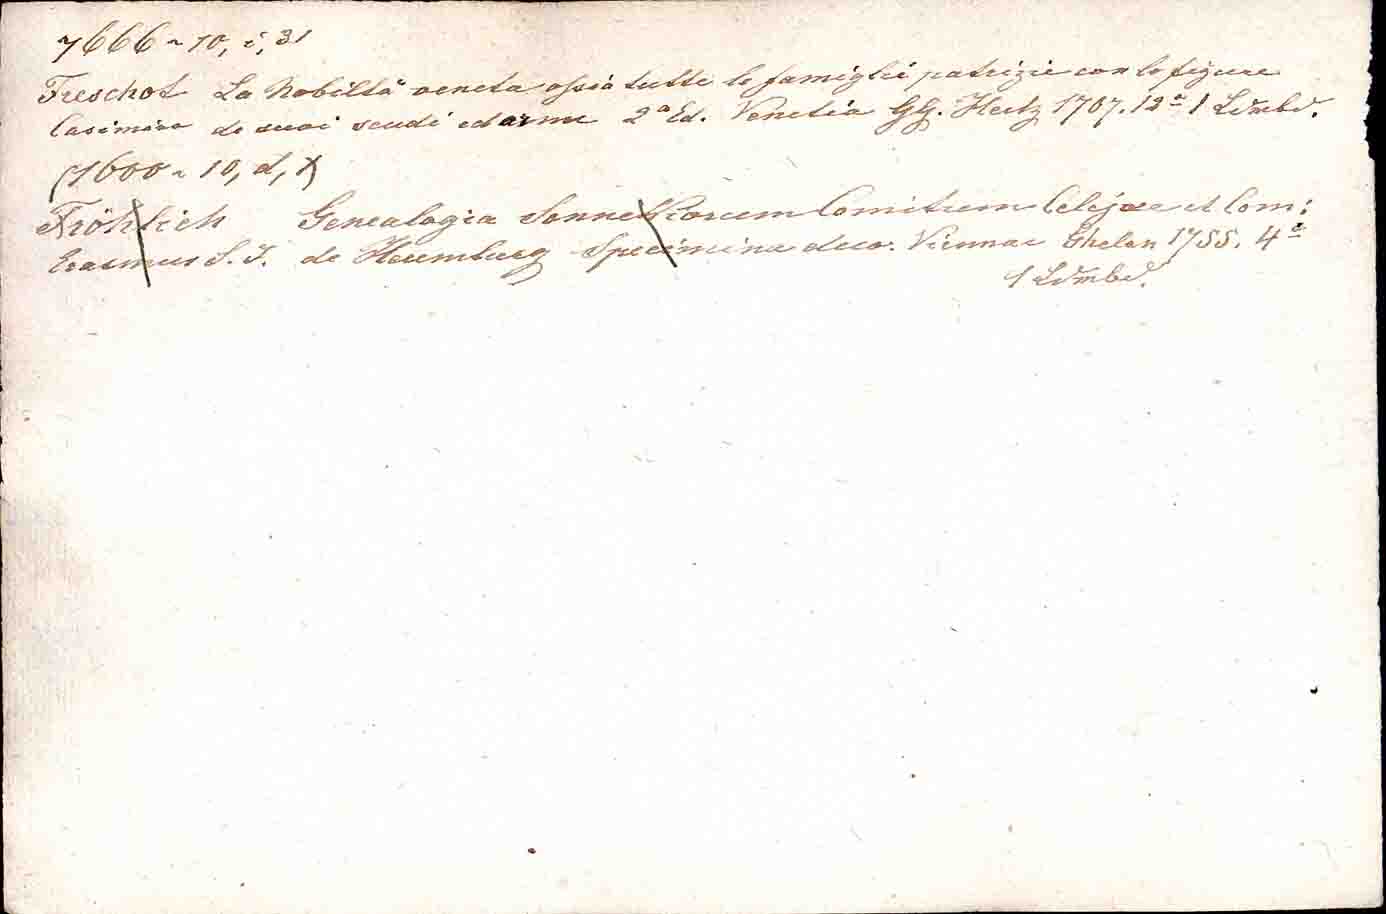 7666 ~ 10, i, 31
Freschot La Nobiltà veneta ossia tutte le famiglie patrizie con le figure
Casimiro de suoi scudi ed arme 2ª Ed. Venetia GG. Hertz 1707. 12º 1 Ldrnbd.
(7600 ~ 10, d, 7)
Fröhlich Genealogia Sounekiorum Comitum Celejae et Com:
Erasmus S. J. de Heunburg Specimina duo. Viennae Ghelen 1755. 4º
1 Ldrnbd.